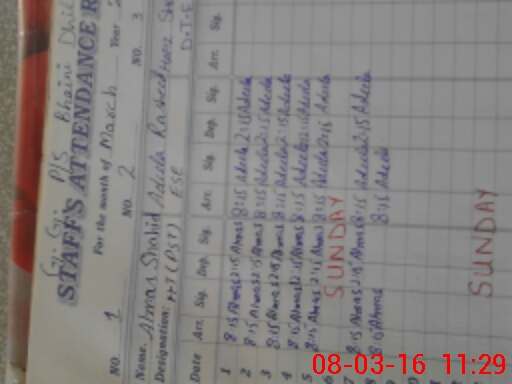 G. G. P/S Bhaini Dhil
STAFF'S ATTENDANCE R
For the month of March Year 2
NO. 1 NO. 2 NO. 3
Name. Ahmas Shahid Adeela Rasheed
Designation: (PST) ESE D.T.E
Date Arr. Sig. Dep. Sig. Arr. Sig. Dep. Sig. Arr. Sig.
1 8:15 Ahmas 2:15 Ahmas 8:15 Adeela 2:15 Adeela
2 8:15 Ahmas 2:15 Ahmas 8:15 Adeela 2:15 Adeela
3 8:15 Ahmas 2:15 Ahmas 8:15 Adeela 2:15 Adeela
4 8:15 Ahmas 2:15 Ahmas 8:15 Adeela 2:15 Adeela
5 8:15 Ahmas 2:15 Ahmas 8:15 Adeela 2:15 Adeela
SUNDAY
8:15 Ahmas 2:15 Ahmas 8:15 Adeela 2:15 Adeela
8:15 Ahmas 8:15 Adeela
SUNDAY
08-03-16 11:29